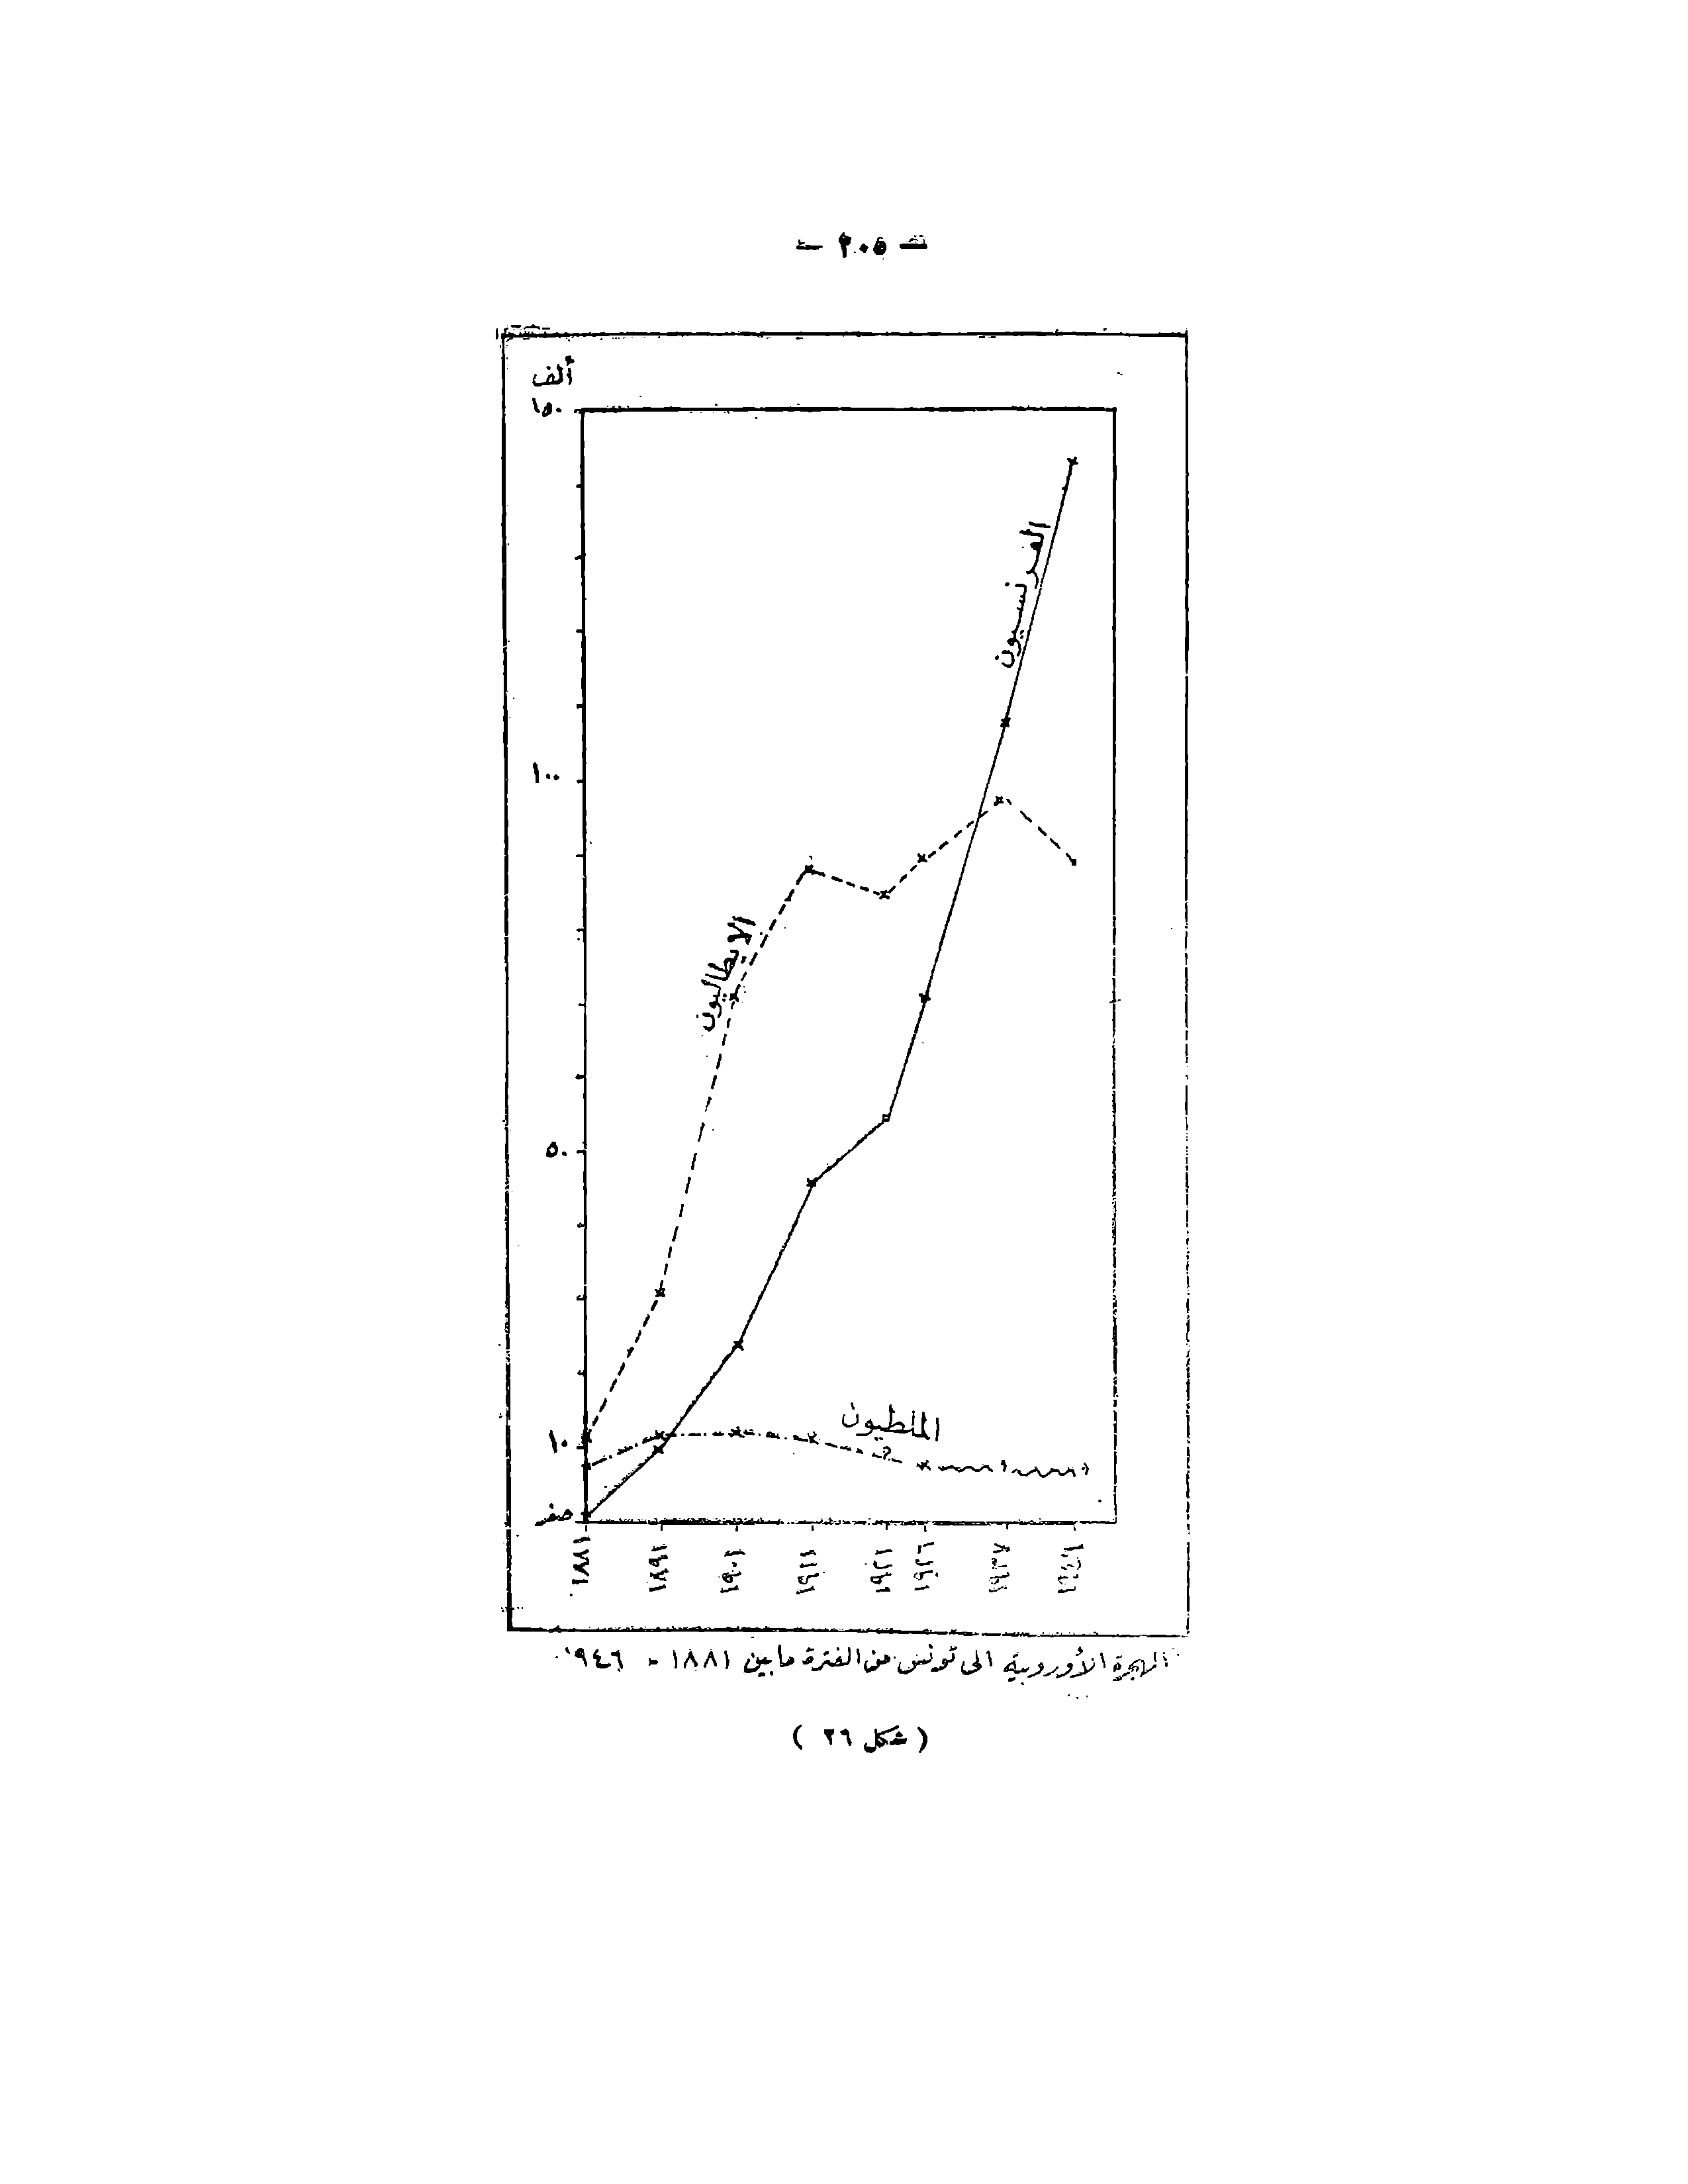 — ٢٠٥ —
ألف
١٥٠
١٠٠
٥٠
١٠
صفر
الفرنسيون
الايطاليون
الملطيون
١٨٨١ ١٨٩١ ١٩٠١ ١٩١١ ١٩٢١ ١٩٢٦ ١٩٣٧ ١٩٤٦
الهجرة الأوروبية الى تونس من الفترة مابين ١٨٨١ - ١٩٤٦
( شكل ٢٦ )